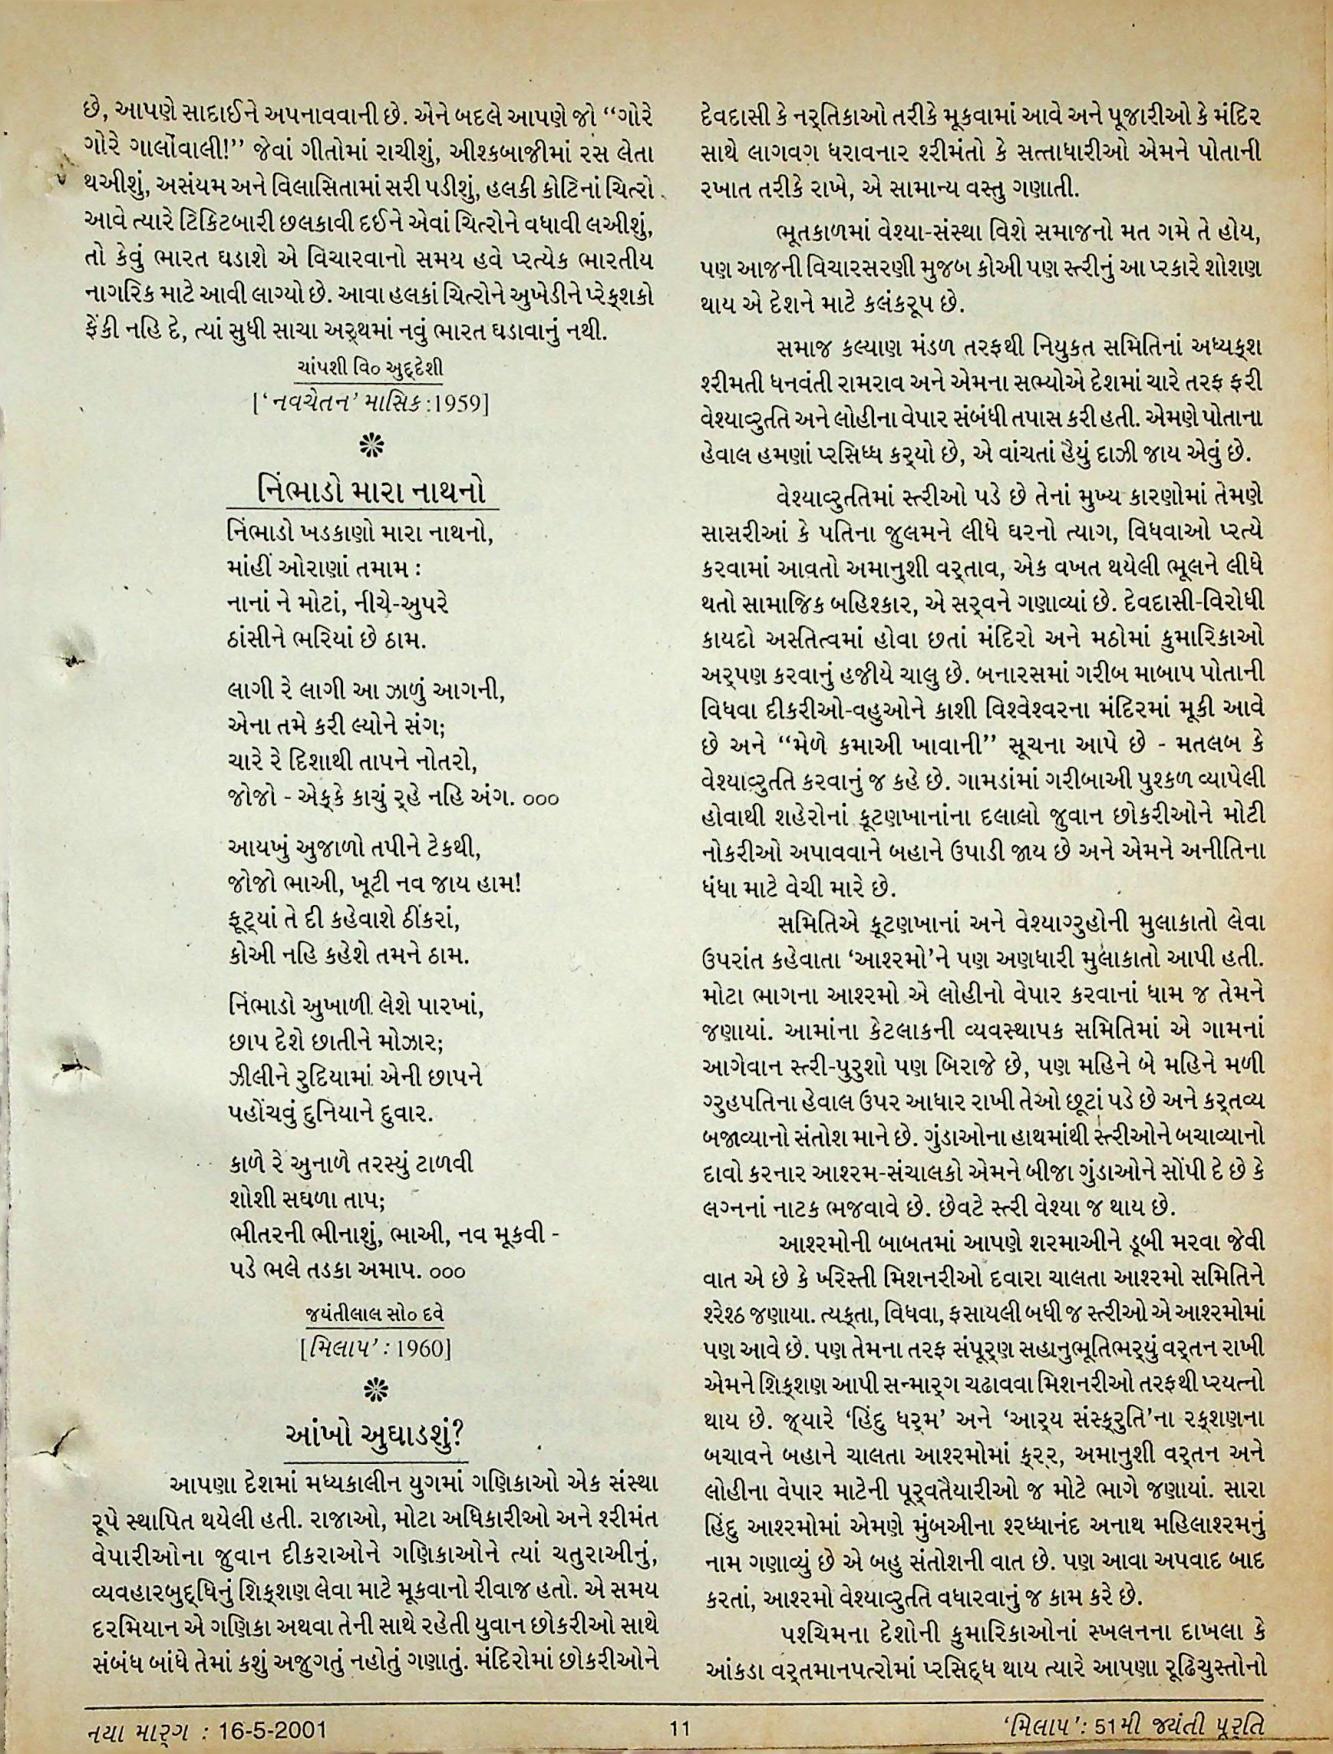 છે, આપણે સાદાઈને અપનાવવાની છે. એને બદલે આપણે જો “ગોરે
ગોરે ગાલોંવાલી!” જેવાં ગીતોમાં રાચીશું, ઑશ્કબાજીમાં રસ લેતા
થઅીશું, અસંયમ અને વિલાસિતામાં સરી પડીશું, હલકી કોટિનાં ચિત્રો
આવે ત્યારે ટિકિટબારી છલકાવી દઈને એવાં ચિત્રોને વધાવી લઅીશું,
તો કેવું ભારત ઘડાશે એ વિચારવાનો સમય હવે પ્રત્યેક ભારતીય
નાગરિક માટે આવી લાગ્યો છે. આવા હલકાં ચિત્રોને અુખેડીને પ્રેક્‌શકો
ફેંકી નહિ દે, ત્યાં સુધી સાચા અર્‌થમાં નવું ભારત ઘડાવાનું નથી.
ચાંપશી વિ૦ અુદ્‌દેશી
[‘નવચેતન’ માસિક :1959]
નિંભાડો મારા નાથનો
નિંભાડો ખડકાણો મારા નાથનો,
માંહીં ઓરાણાં તમામ :
નાનાં ને મોટાં, નીચે-અુપરે
ઠાંસીને ભરિયાં છે ઠામ.
લાગી રે લાગી આ ઝાળું આગની,
એના તમે કરી લ્યોને સંગ;
ચારે રે દિશાથી તાપને નોતરો,
જોજો - એક્‌કે કાચું ર્‌હે નહિ અંગ. ૦૦૦
આયખું અુજાળો તપીને ટેકથી,
જોજો ભાઅી, ખૂટી નવ જાય હામ!
ફૂટ્‌યાં તે દી કહેવાશે ઠીંકરાં,
કોઅી નહિ કહેશે તમને ઠામ.
નિંભાડો અુખાળી લેશે પારખાં,
છાપ દેશે છાતીને મોઝાર;
ઝીલીને રુદિયામાં એની છાપને
પહોંચવું દુનિયાને દુવાર.
કાળે રે અુનાળે તરસ્યું ટાળવી
શોશી સઘળા તાપ;
ભીતરની ભીનાશું, ભાઅી, નવ મૂકવી -
પડે ભલે તડકા અમાપ. ૦૦૦
જયંતીલાલ સો૦ દવે
[મિલાપ’ : 1960]
આંખો અુઘાડશું?
આપણા દેશમાં મધ્યકાલીન યુગમાં ગણિકાઓ એક સંસ્થા
રૂપે સ્થાપિત થયેલી હતી. રાજાઓ, મોટા અધિકારીઓ અને શ્‌રીમંત
વેપારીઓના જુવાન દીકરાઓને ગણિકાઓને ત્યાં ચતુરાઅીનું,
વ્યવહારબુદ્‌ધિનું શિક્‌શણ લેવા માટે મૂકવાનો રીવાજ હતો. એ સમય
દરમિયાન એ ગણિકા અથવા તેની સાથે રહેતી યુવાન છોકરીઓ સાથે
સંબંધ બાંધે તેમાં કશું અજુગતું નહોતું ગણાતું. મંદિરોમાં છોકરીઓને
દેવદાસી કે નર્‌તિકાઓ તરીકે મૂકવામાં આવે અને પૂજારીઓ કે મંદિર
સાથે લાગવગ ધરાવનાર શ્‌રીમંતો કે સત્તાધારીઓ એમને પોતાની
રખાત તરીકે રાખે, એ સામાન્ય વસ્તુ ગણાતી.
ભૂતકાળમાં વેશ્યા-સંસ્થા વિશે સમાજનો મત ગમે તે હોય,
પણ આજની વિચારસરણી મુજબ કોઅી પણ સ્ત્‌રીનું આ પ્‌રકારે શોશણ
થાય એ દેશને માટે કલંકરૂપ છે.
સમાજ કલ્યાણ મંડળ તરફથી નિયુકત સમિતિનાં અધ્યક્‌શ
શ્‌રીમતી ધનવંતી રામરાવ અને એમના સભ્યોએ દેશમાં ચારે તરફ ફરી
વેશ્યાવ્‌રુતતિ અને લોહીના વેપાર સંબંધી તપાસ કરી હતી. એમણે પોતાના
હેવાલ હમણાં પ્‌રસિધ્ધ કર્‌યો છે, એ વાંચતાં હૈયું દાઝી જાય એવું છે.
વેશ્યાવ્‌રુતતિમાં સ્ત્‌રીઓ પડે છે તેનાં મુખ્ય કારણોમાં તેમણે
સાસરીઆં કે પતિના જુલમને લીધે ઘરનો ત્યાગ, વિધવાઓ પ્‌રત્યે
કરવામાં આવતો અમાનુશી વર્‌તાવ, એક વખત થયેલી ભૂલને લીધે
થતો સામાજિક બહિશ્કાર, એ સર્‌વને ગણાવ્યાં છે. દેવદાસી-વિરોધી
કાયદો અસ્તિત્વમાં હોવા છતાં મંદિરો અને મઠોમાં કુમારિકાઓ
અર્‌પણ કરવાનું હજીયે ચાલુ છે. બનારસમાં ગરીબ માબાપ પોતાની
વિધવા દીકરીઓ-વહુઓને કાશી વિશ્વેશ્વરના મંદિરમાં મૂકી આવે
છે અને “મેળે કમાઅી ખાવાની” સૂચના આપે છે - મતલબ કે
વેશ્યાવ્‌રુતતિ કરવાનું જ કહે છે. ગામડાંમાં ગરીબાઅી પુશ્કળ વ્યાપેલી
હોવાથી શહેરોનાં કૂટણખાનાંના દલાલો જુવાન છોકરીઓને મોટી
નોકરીઓ અપાવવાને બહાને ઉપાડી જાય છે અને એમને અનીતિના
ધંધા માટે વેચી મારે છે.
સમિતિએ કૂટણખાનાં અને વેશ્યાગ્‌રુહોની મુલાકાતો લેવા
ઉપરાંત કહેવાતા ‘આશ્‌રમો’ને પણ અણધારી મુલાકાતો આપી હતી.
મોટા ભાગના આશ્‌રમો એ લોહીનો વેપાર કરવાનાં ધામ જ તેમને
જણાયાં. આમાંના કેટલાકની વ્યવસ્થાપક સમિતિમાં એ ગામનાં
આગેવાન સ્ત્‌રી-પુરુશો પણ બિરાજે છે, પણ મહિને બે મહિને મળી
ગ્‌રુહપતિના હેવાલ ઉપર આધાર રાખી તેઓ છૂટાં પડે છે અને કર્‌તવ્ય
બજાવ્યાનો સંતોશ માને છે. ગુંડાઓના હાથમાંથી સ્ત્‌રીઓને બચાવ્યાનો
દાવો કરનાર આશ્‌રમ-સંચાલકો એમને બીજા ગુંડાઓને સોંપી દે છે કે
લગ્નનાં નાટક ભજવાવે છે. છેવટે સ્ત્‌રી વેશ્યા જ થાય છે.
આશ્‌રમોની બાબતમાં આપણે શરમાઅીને ડૂબી મરવા જેવી
વાત એ છે કે ખ્‌રિસ્તી મિશનરીઓ દ્‌વારા ચાલતા આશ્‌રમો સમિતિને
શ્‌રેશ્ઠ જણાયા. ત્યક્‌તા, વિધવા, ફસાયલી બધી જ સ્ત્‌રીઓ એ આશ્‌રમોમાં
પણ આવે છે. પણ તેમના તરફ સંપૂર્‌ણ સહાનુભૂતિભર્‌યું વર્‌તન રાખી
એમને શિક્‌શણ આપી સન્માર્‌ગ ચઢાવવા મિશનરીઓ તરફથી પ્‌રયત્નો
થાય છે. જ્‌યારે ‘હિંદુ ધર્‌મ’ અને ‘આર્‌ય સંસ્ક્‌રુતિ’ના રક્‌શણના
બચાવને બહાને ચાલતા આશ્‌રમોમાં ક્‌રૂર, અમાનુશી વર્‌તન અને
લોહીના વેપાર માટેની પૂર્‌વતૈયારીઓ જ મોટે ભાગે જણાયાં. સારા
હિંદુ આશ્‌રમોમાં એમણે મુંબઅીના શ્‌રધ્ધાનંદ અનાથ મહિલાશ્‌રમનું
નામ ગણાવ્યું છે એ બહુ સંતોશની વાત છે. પણ આવા અપવાદ બાદ
કરતાં, આશ્‌રમો વેશ્યાવ્‌રુતતિ વધારવાનું જ કામ કરે છે.
પશ્ચિમના દેશોની કુમારિકાઓનાં સ્ખલનના દાખલા કે
આંકડા વર્‌તમાનપત્‌રોમાં પ્‌રસિદ્‌ધ થાય ત્યારે આપણા રૂઢિચુસ્તોનો
નયા માર્‌ગ : 16-5-2001
11
‘મિલાપ’ : 51મી જયંતી પૂર્‌તિ